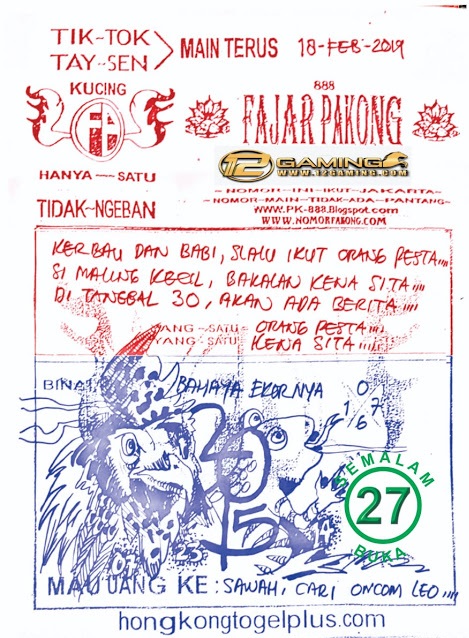 TIK-TOK
TAY-SEN
MAIN TERUS 18-FEB-2019
KUCING
888
FAJAR PAKONG
12 GAMING
WWW.12GAMING.COM
HANYA-SATU
NOMOR-INI-IKUT-JAKARTA-
-NOMOR-MAIN-TIDAK-ADA-PANTANG-
TIDAK-NGEBAN
WWW.PK-888.Blogspot.com
WWW.NOMORPAKONG.COM
KERBAU DAN BABI, SLALU IKUT ORANG PESTA,,,,
SI MALING KECIL, BAKALAN KENA SITA,,,,
DI TANGGAL 30, AKAN ADA BERITA,,,,
YANG-SATU- ORANG PESTA,,,,
YANG-SATU- KENA SITA,,,,
BAHAYA EKORNYA 0
1 7
6
SEMALAM
27
BUKA
MAU UANG KE: SAWAH, CARI ONCOM LEO,,,,
hongkongtogelplus.com